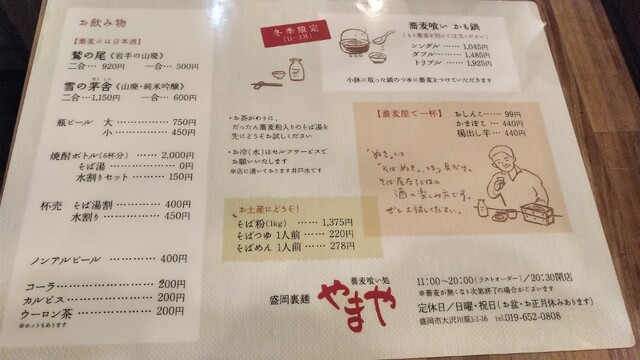 お飲み物
【蕎麦には日本酒】
鷲の尾《岩手の山廃》
二合… 920円 一合… 500円
雪の茅舎《山廃・純米吟醸》
二合…1,150円 一合… 600円
瓶ビール 大 …… 750円
小 …… 450円
焼酎ボトル(6杯分) …… 2,000円
そば湯 …… 0円
水割りセット …… 150円
杯売 そば湯割 …… 400円
水割り …… 450円
ノンアルビール …… 400円
コーラ …… 200円
カルピス …… 200円
ウーロン茶 …… 200円
※ホットもあります
冬季限定
(11〜3月)
蕎麦喰い かも鍋
シングル …… 1,045円
ダブル …… 1,485円
トリプル …… 1,925円
小鉢に取った鍋のつゆに蕎麦をつけていただきます
・お茶がわりに、
だったん蕎麦粉入りのそば湯を
先にどうぞお試しください
・お冷(水)はセルフサービスで
お願いいたします
※店に湧いております井戸水です
【蕎麦屋で一杯】
おしんこ…… 99円
かまぼこ … 440円
揚出し芋… 440円
「ぬき」とは
「そばぬき」、つまり具だけ。
そば屋ならではの
酒の楽しみ方です。
ぜひお試しください。
お土産にどうぞ!
そば粉(1kg) …… 1,375円
そばつゆ 1人前 …… 220円
そばめん 1人前 …… 278円
盛岡裏麺
蕎麦喰い処
やまや
11:00〜20:00(ラストオーダー)/20:30閉店
※蕎麦が無くなり次第終了の場合がございます
定休日/日曜・祝日(お盆・お正月休みあります)
盛岡市大沢川原1-1-16 tel.019-652-0808